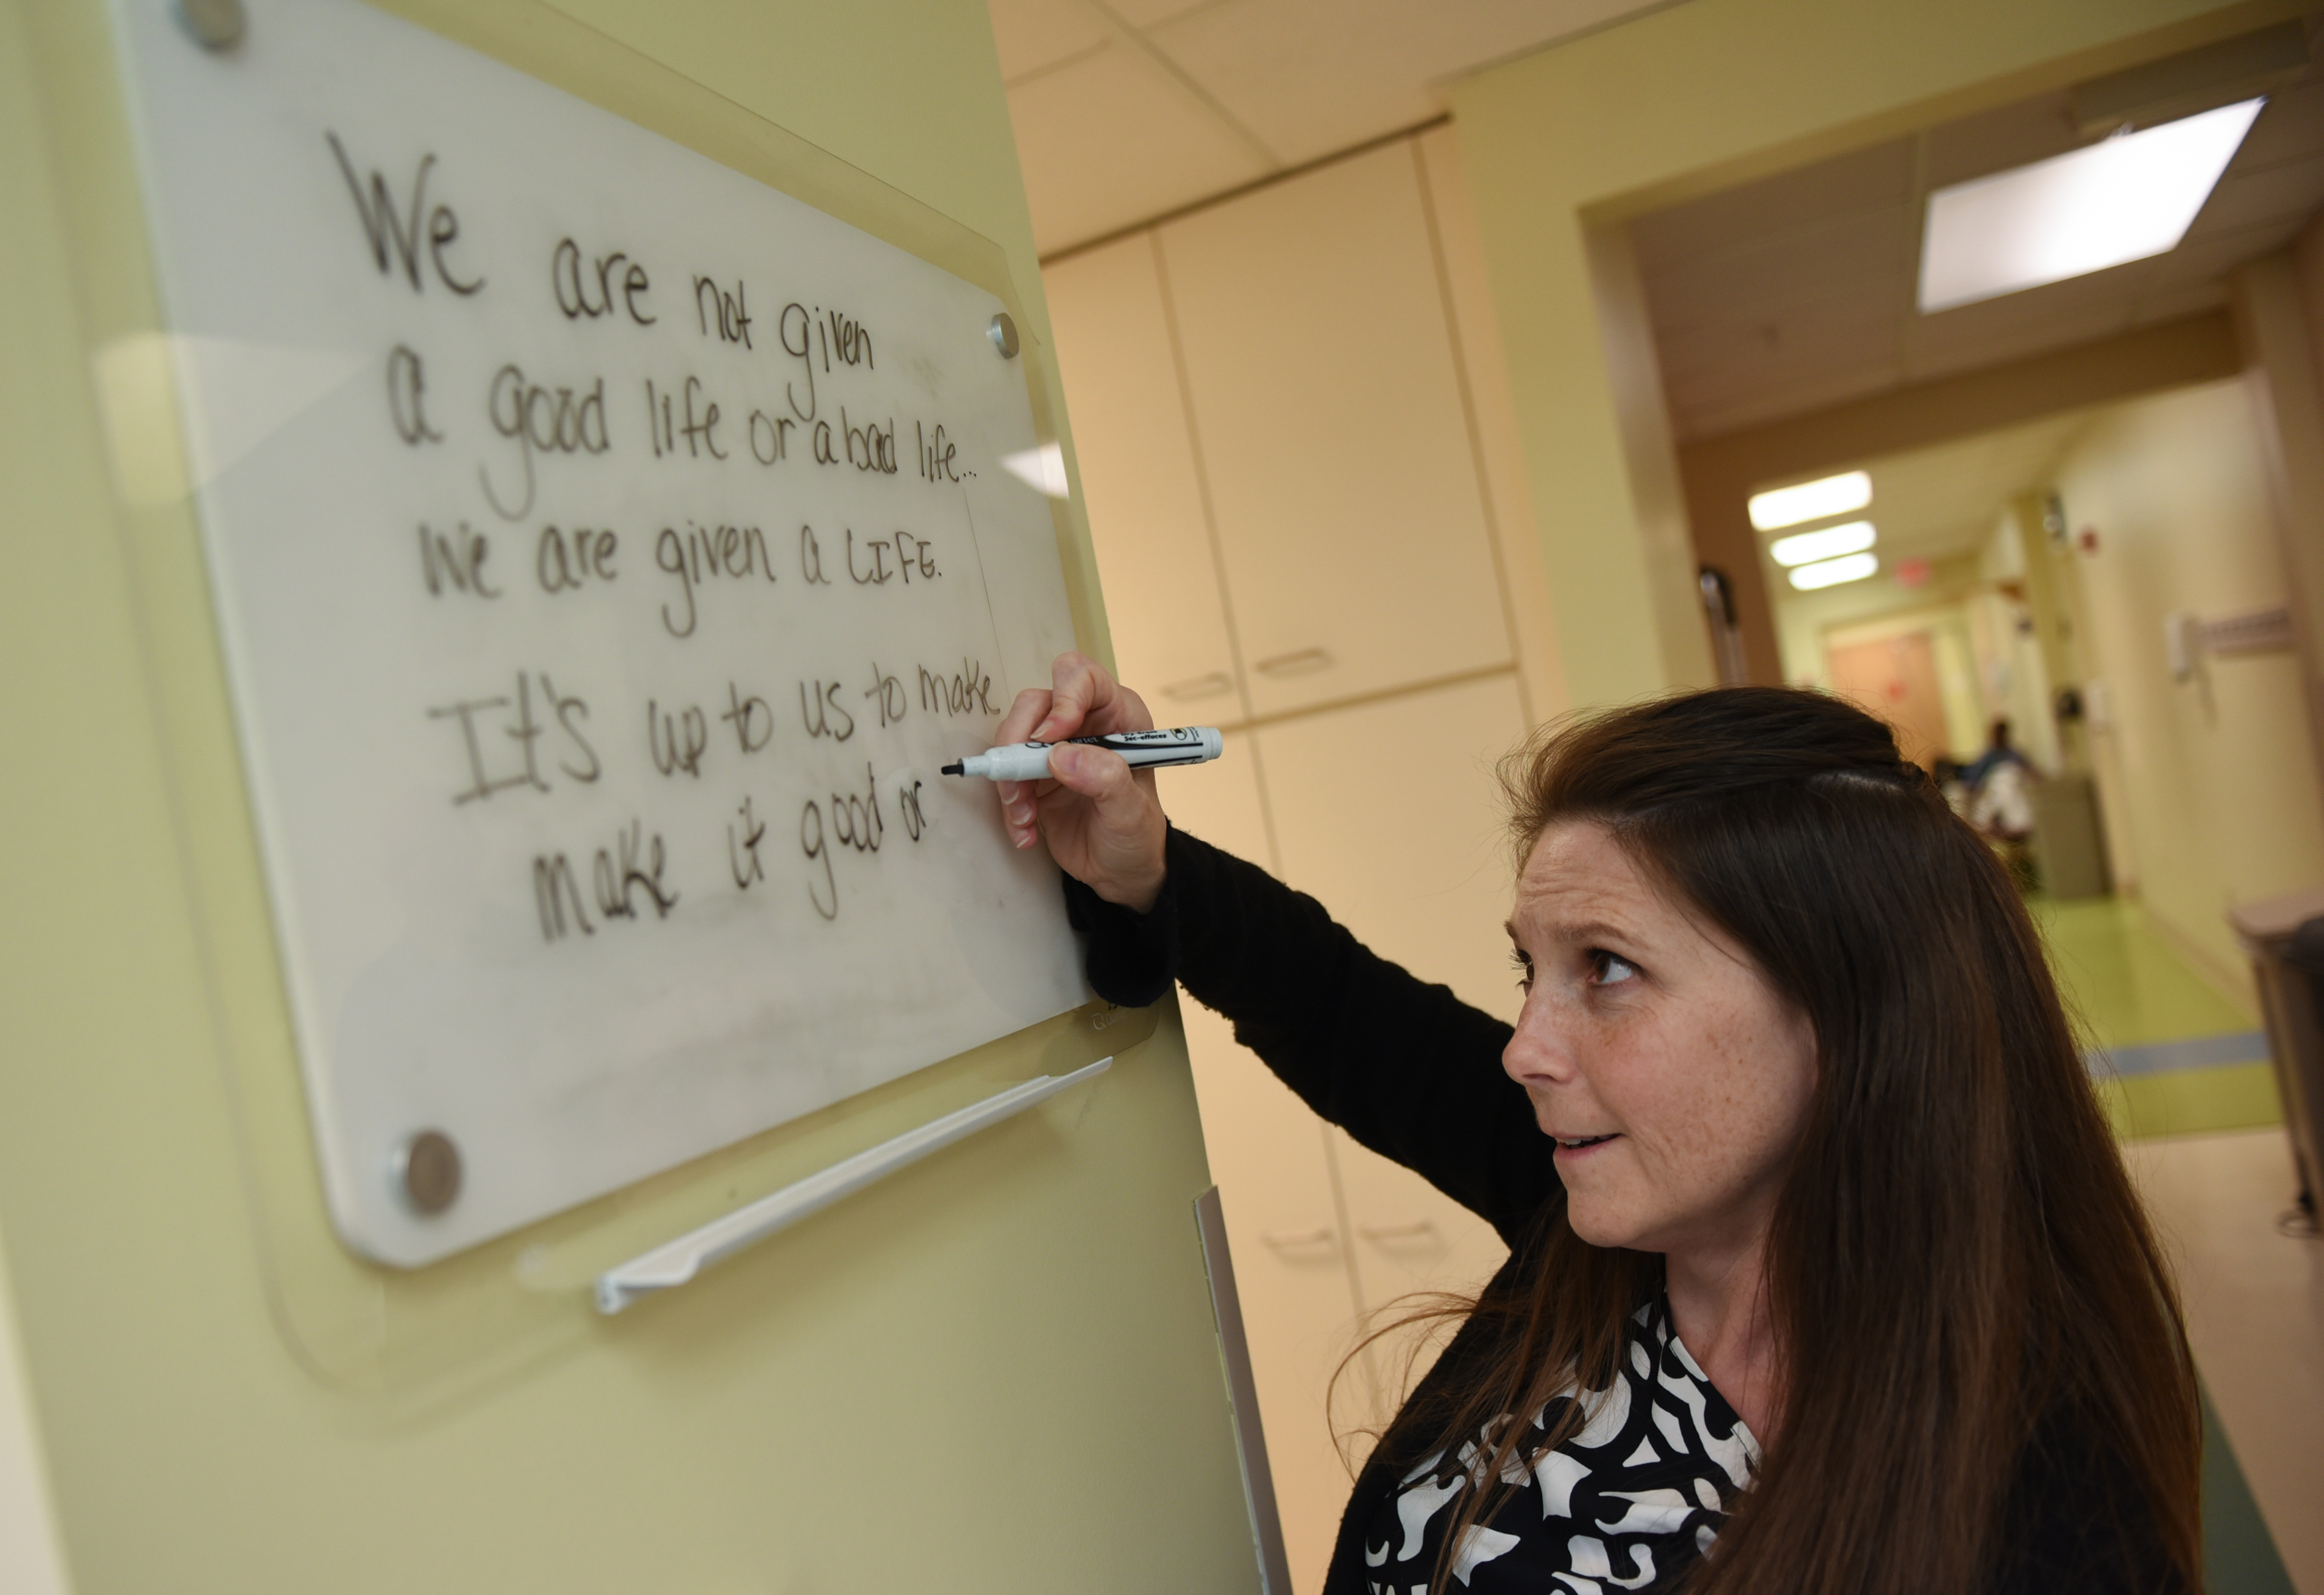 We are not given
a good life or a bad life...
We are given a LIFE.
It's up to us to make
make it good or
Sec-effaces